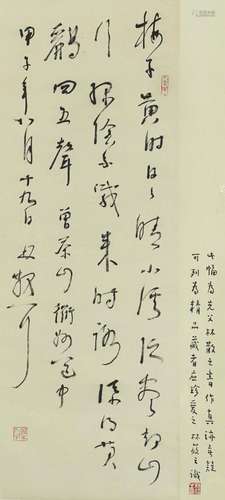 梅子黄时日日晴小溪泛尽却山
行绿阴不减来时路添得黄
鹂四五声 曾茶山衢州道中
甲子年六月十九日 散耳
此幅为先父林散之书作真迹无疑
可列为精品藏者应珍爱之 林筱之识